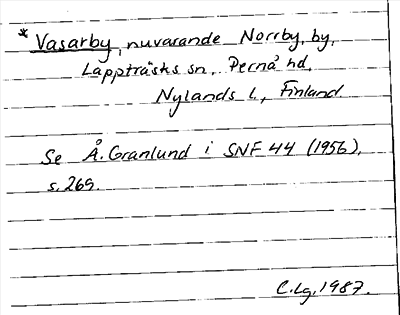 * Vasarby, nuvarande Norrby, by,
Lappträsks sn, Pernå hd,
Nylands l., Finland.
Se Å. Granlund i SNF 44 (1956),
s. 269.
C.Lg. 1987.